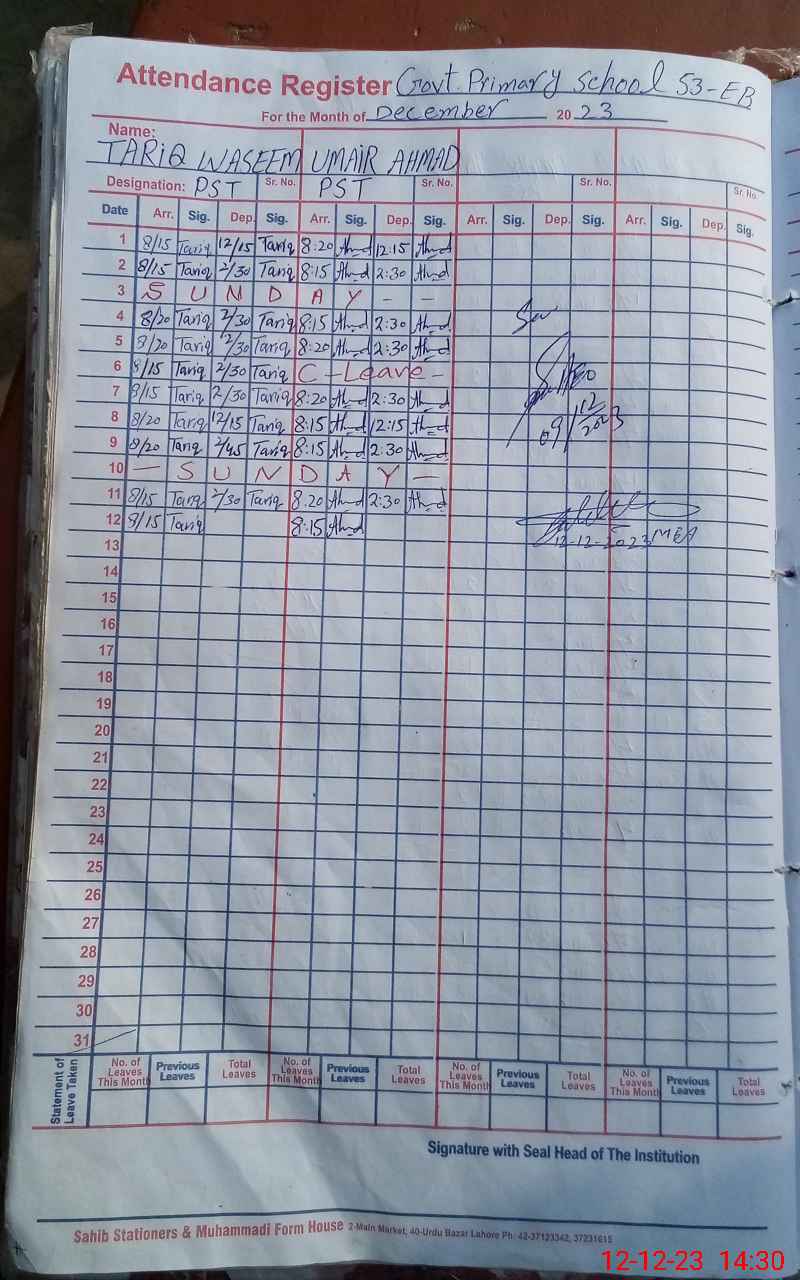 Attendance Register Govt. Primary School 53-EB
For the Month of December 2023
Name:
TARIQ WASEEM UMAIR AHMAD
Designation: PST Sr. No. PST Sr. No. Sr. No. Sr. No.
Date Arr. Sig. Dep. Sig. Arr. Sig. Dep. Sig. Arr. Sig. Dep. Sig. Arr. Sig. Dep. Sig.
1 8/15 Tariq 12/15 Tariq 8:20 Ahmd 12:15 Ahmd
2 8/15 Tariq 2/30 Tariq 8:15 Ahmd 2:30 Ahmd
3 S U N D A Y - -
4 8/20 Tariq 2/30 Tariq 8:15 Ahmd 2:30 Ahmd
5 8/20 Tariq 2/30 Tariq 8:20 Ahmd 2:30 Ahmd
6 8/15 Tariq 2/30 Tariq C - Leave -
7 8/15 Tariq 2/30 Tariq 8:20 Ahmd 2:30 Ahmd
8 8/20 Tariq 12/15 Tariq 8:15 Ahmd 12:15 Ahmd
9 8/20 Tariq 2/45 Tariq 8:15 Ahmd 2:30 Ahmd
09/12/2023
10 - S U N D A Y -
11 8/15 Tariq 2/30 Tariq 8:20 Ahmd 2:30 Ahmd
12 8/15 Tariq 8:15 Ahmd
12-12-2023 MEA
13
14
15
16
17
18
19
20
21
22
23
24
25
26
27
28
29
30
31
Statement of Leave Taken
No. of Leaves This Month Previous Leaves Total Leaves No. of Leaves This Month Previous Leaves Total Leaves No. of Leaves This Month Previous Leaves Total Leaves No. of Leaves This Month Previous Leaves Total Leaves
Signature with Seal Head of The Institution
Sahib Stationers & Muhammadi Form House 2-Main Market, 40-Urdu Bazar Lahore Ph: 42-37123342, 37231615
12-12-23 14:30